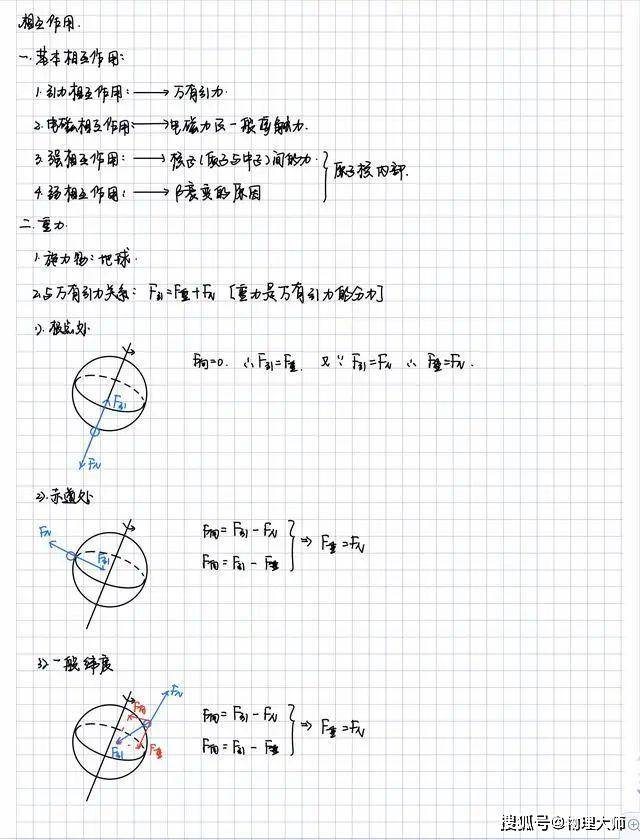 相互作用.
一.基本相互作用:
1.引力相互作用: → 万有引力.
2.电磁相互作用: → 电磁力及一般接触力.
3.强相互作用: → 核子(质子与中子)间的力.
4.弱相互作用: → β衰变的原因
} 原子核内部.
二.重力.
1.施力物:地球.
2.与万有引力关系: F引=F重+FN [重力是万有引力的分力]
1).极点处
F向=0. ∴F引=F重. 又∵F引=FN ∴F重=FN.
F引
FN
2).赤道处
FN
F引
F向=F引-FN
F向=F引-F重
} ⇒ F重=FN
3).一般纬度
FN
F向
F引
F重
F向=F引-FN
F向=F引-F重
} ⇒ F重=FN
搜狐号@物理大师